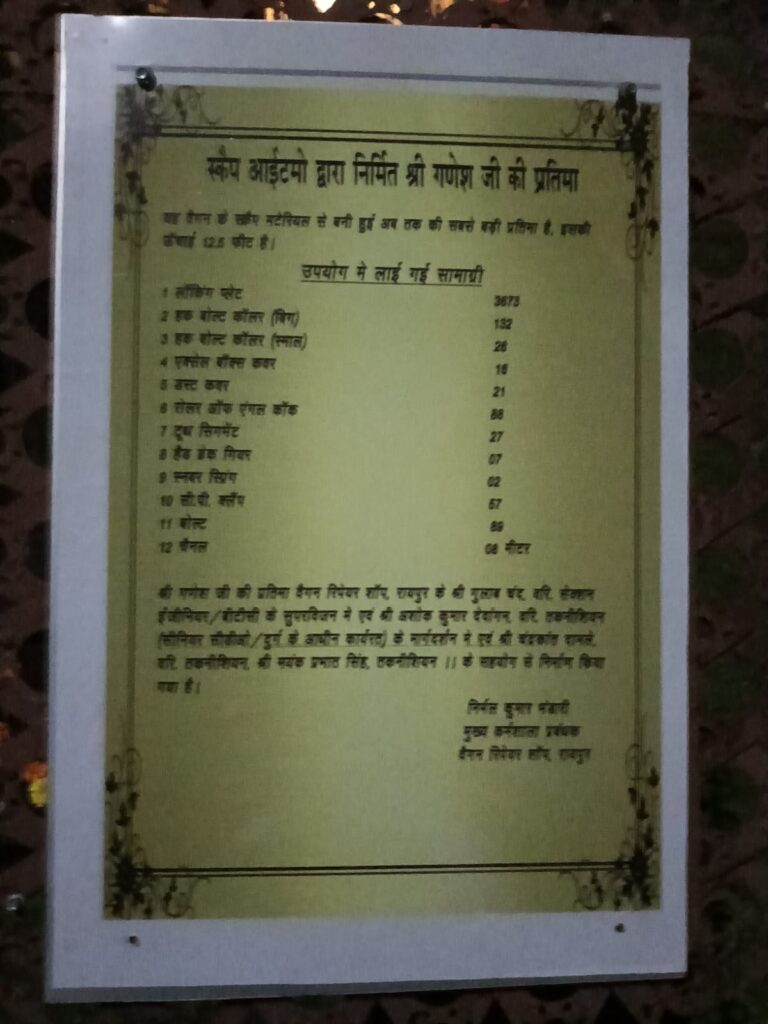 स्कैप आईटमो द्वारा निर्मित श्री गणेश जी की प्रतिमा
यह वैगन के स्क्रैप मटेरियल से बनी हुई अब तक की सबसे बड़ी प्रतिमा है, इसकी
ऊँचाई 12.5 फीट है।
उपयोग मे लाई गई सामाग्री
1 लॉकिंग प्लेट 3673
2 हक बोल्ट कॉलर (बिग) 132
3 हक बोल्ट कॉलर (स्माल) 26
4 एक्सेल बॉक्स कवर 16
5 डस्ट कवर 21
6 रोलर ऑफ एंगल कॉक 88
7 टूथ सिगमेंट 27
8 हैंड ब्रेक गियर 07
9 स्नबर स्प्रिंग 02
10 सी.पी. क्लैंप 57
11 बोल्ट 89
12 चैनल 08 मीटर
श्री गणेश जी की प्रतिमा वैगन रिपेयर शॉप, रायपुर के श्री गुलाब चंद, वरि. सेक्शन
ईंजीनियर/बीटीसी के सुपरविजन मे एवं श्री अशोक कुमार देवांगन, वरि. तकनीशियन
(सीनियर सीडीओ/दुर्ग के आधीन कार्यरत) के मार्गदर्शन मे एवं श्री चंद्रकांत
वरि. तकनीशियन, श्री मयंक प्रभात सिंह, तकनीशियन ।। के सहयोग से निर्माण किया
गया है।
निर्मल कुमार भंडारी
मुख्य कर्मशाला प्रबंधक
वैगन रिपेयर शॉप, रायपुर